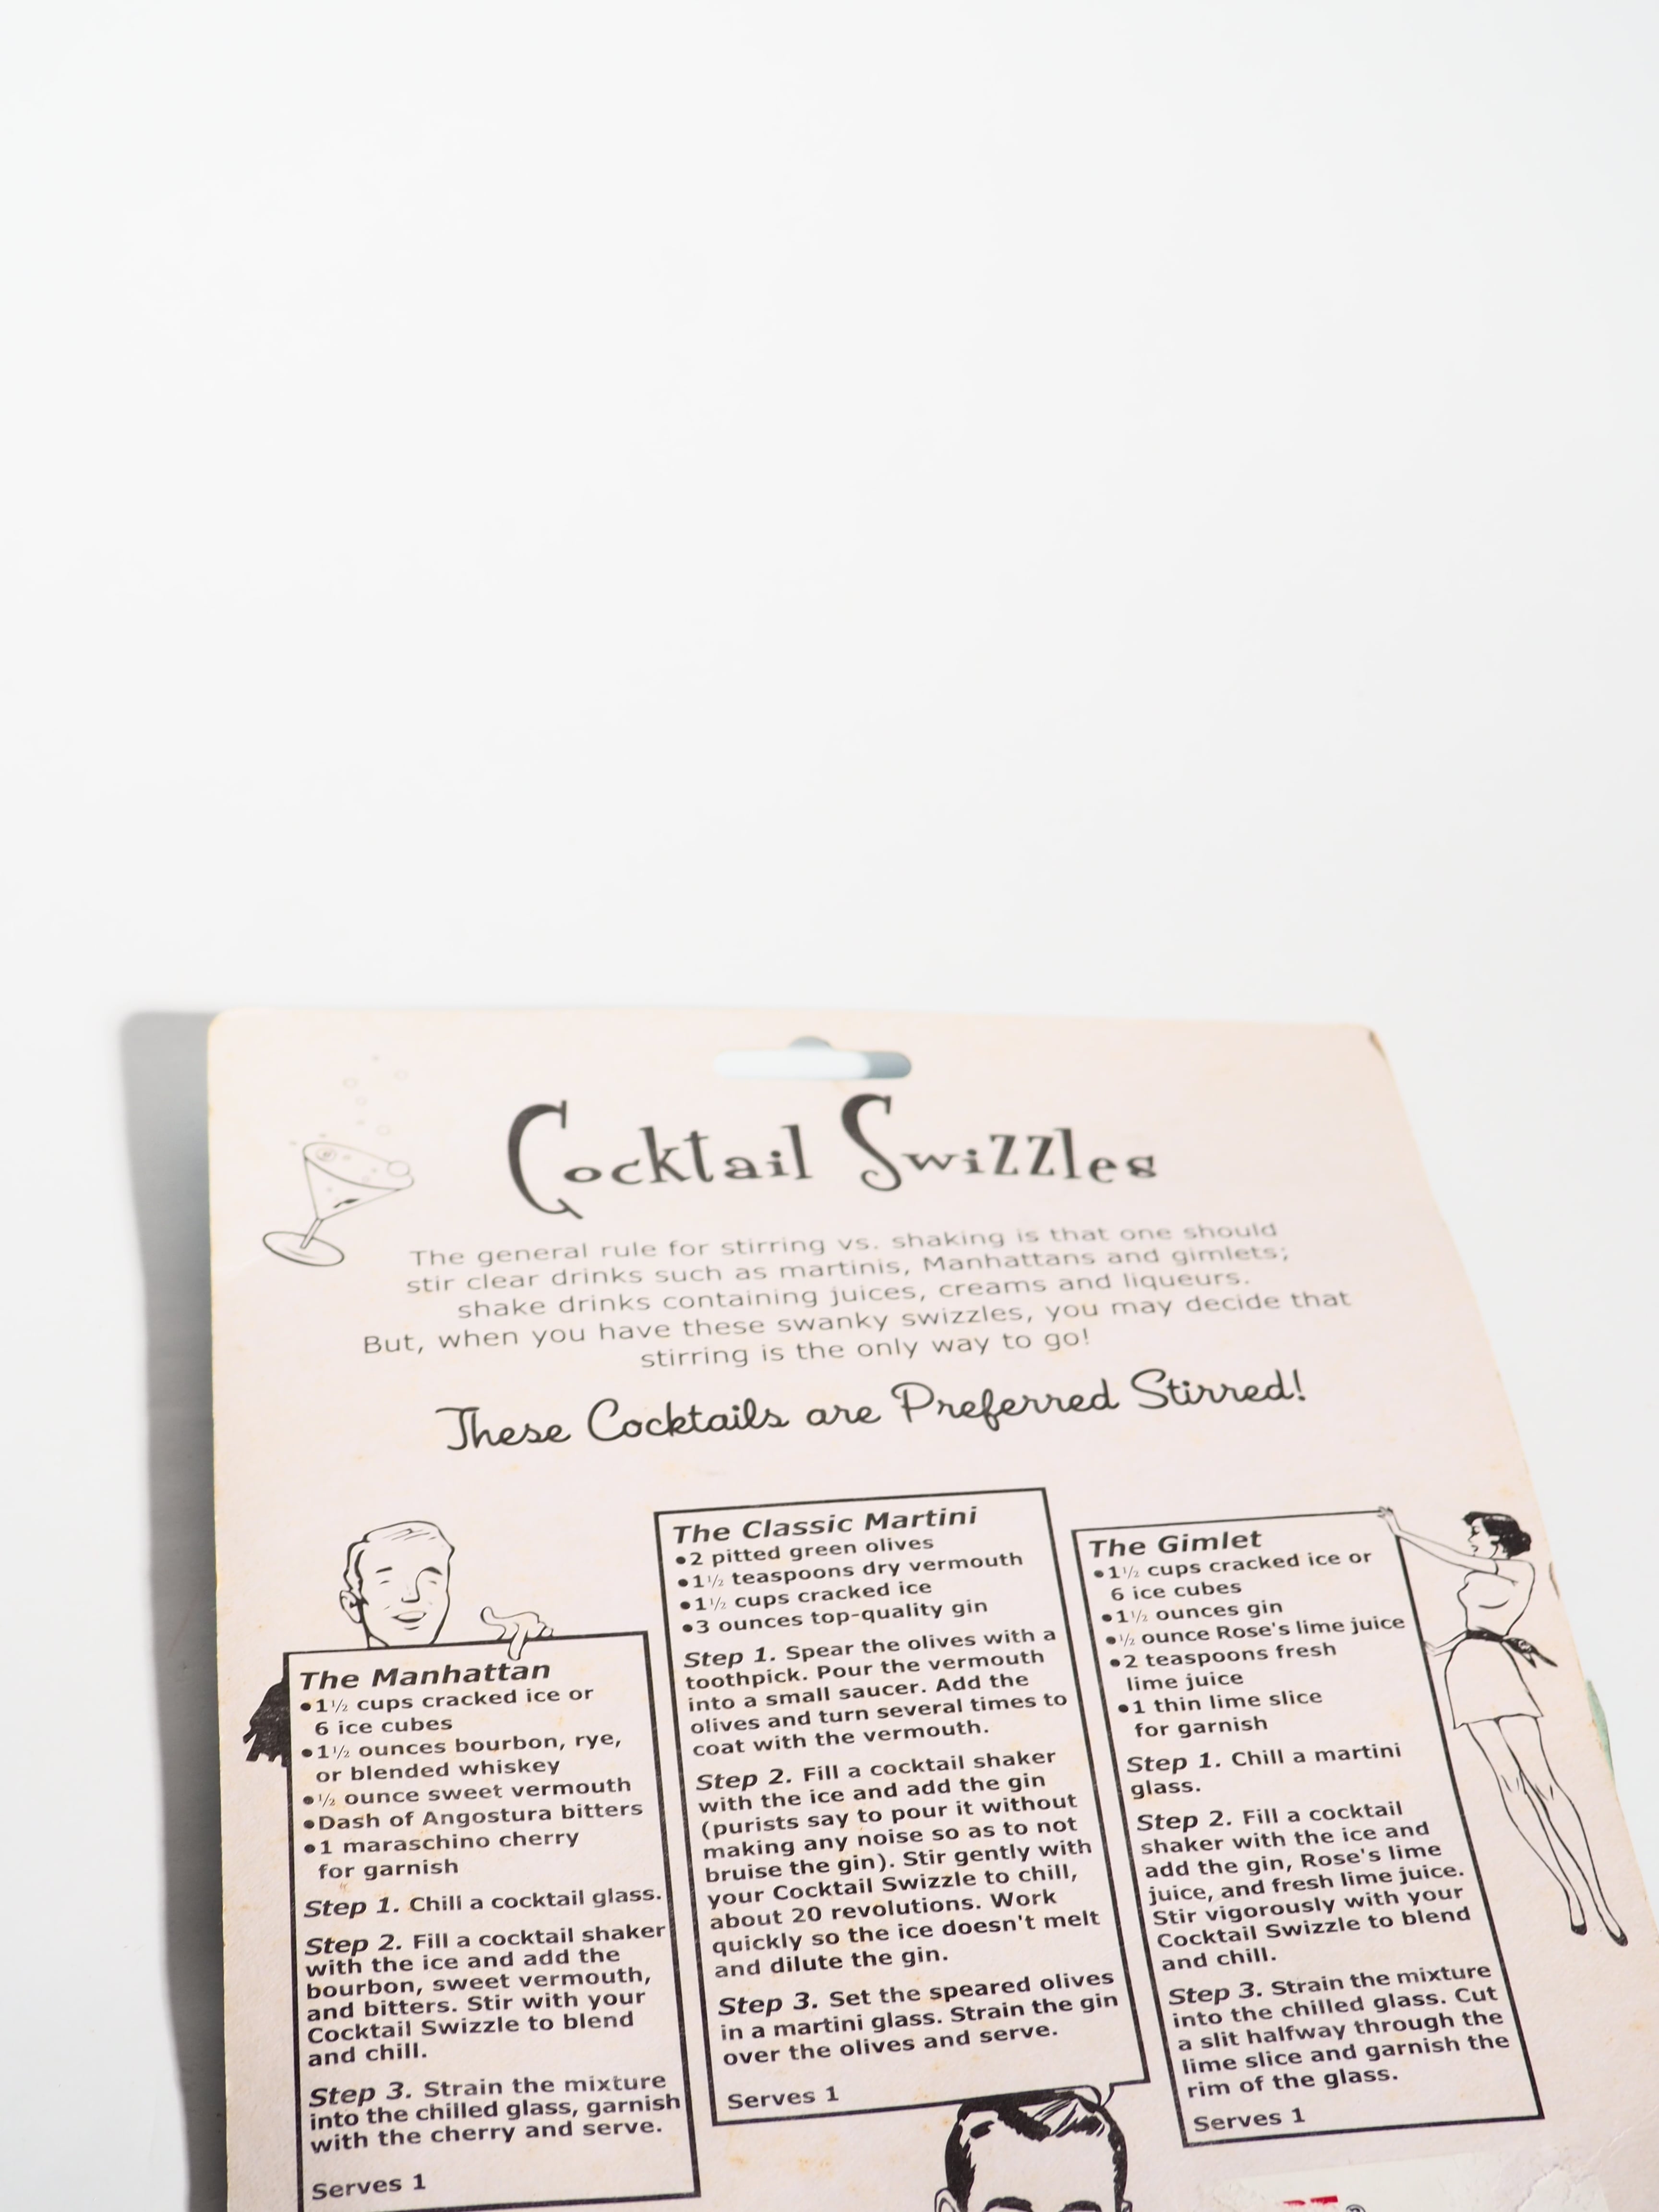 Cocktail Swizzles
The general rule for stirring vs. shaking is that one should
stir clear drinks such as martinis, Manhattans and gimlets;
shake drinks containing juices, creams and liqueurs.
But, when you have these swanky swizzles, you may decide that
stirring is the only way to go!
These Cocktails are Preferred Stirred!
The Manhattan
•1½ cups cracked ice or
6 ice cubes
•1½ ounces bourbon, rye,
or blended whiskey
•½ ounce sweet vermouth
•Dash of Angostura bitters
•1 maraschino cherry
for garnish
Step 1. Chill a cocktail glass.
Step 2. Fill a cocktail shaker
with the ice and add the
bourbon, sweet vermouth,
and bitters. Stir with your
Cocktail Swizzle to blend
and chill.
Step 3. Strain the mixture
into the chilled glass, garnish
with the cherry and serve.
Serves 1
The Classic Martini
•2 pitted green olives
•1½ teaspoons dry vermouth
•1½ cups cracked ice
•3 ounces top-quality gin
Step 1. Spear the olives with a
toothpick. Pour the vermouth
into a small saucer. Add the
olives and turn several times to
coat with the vermouth.
Step 2. Fill a cocktail shaker
with the ice and add the gin
(purists say to pour it without
making any noise so as to not
bruise the gin). Stir gently with
your Cocktail Swizzle to chill,
about 20 revolutions. Work
quickly so the ice doesn't melt
and dilute the gin.
Step 3. Set the speared olives
in a martini glass. Strain the gin
over the olives and serve.
Serves 1
The Gimlet
•1½ cups cracked ice or
6 ice cubes
•1½ ounces gin
•½ ounce Rose's lime juice
•2 teaspoons fresh
lime juice
•1 thin lime slice
for garnish
Step 1. Chill a martini
glass.
Step 2. Fill a cocktail
shaker with the ice and
add the gin, Rose's lime
juice, and fresh lime juice.
Stir vigorously with your
Cocktail Swizzle to blend
and chill.
Step 3. Strain the mixture
into the chilled glass. Cut
a slit halfway through the
lime slice and garnish the
rim of the glass.
Serves 1